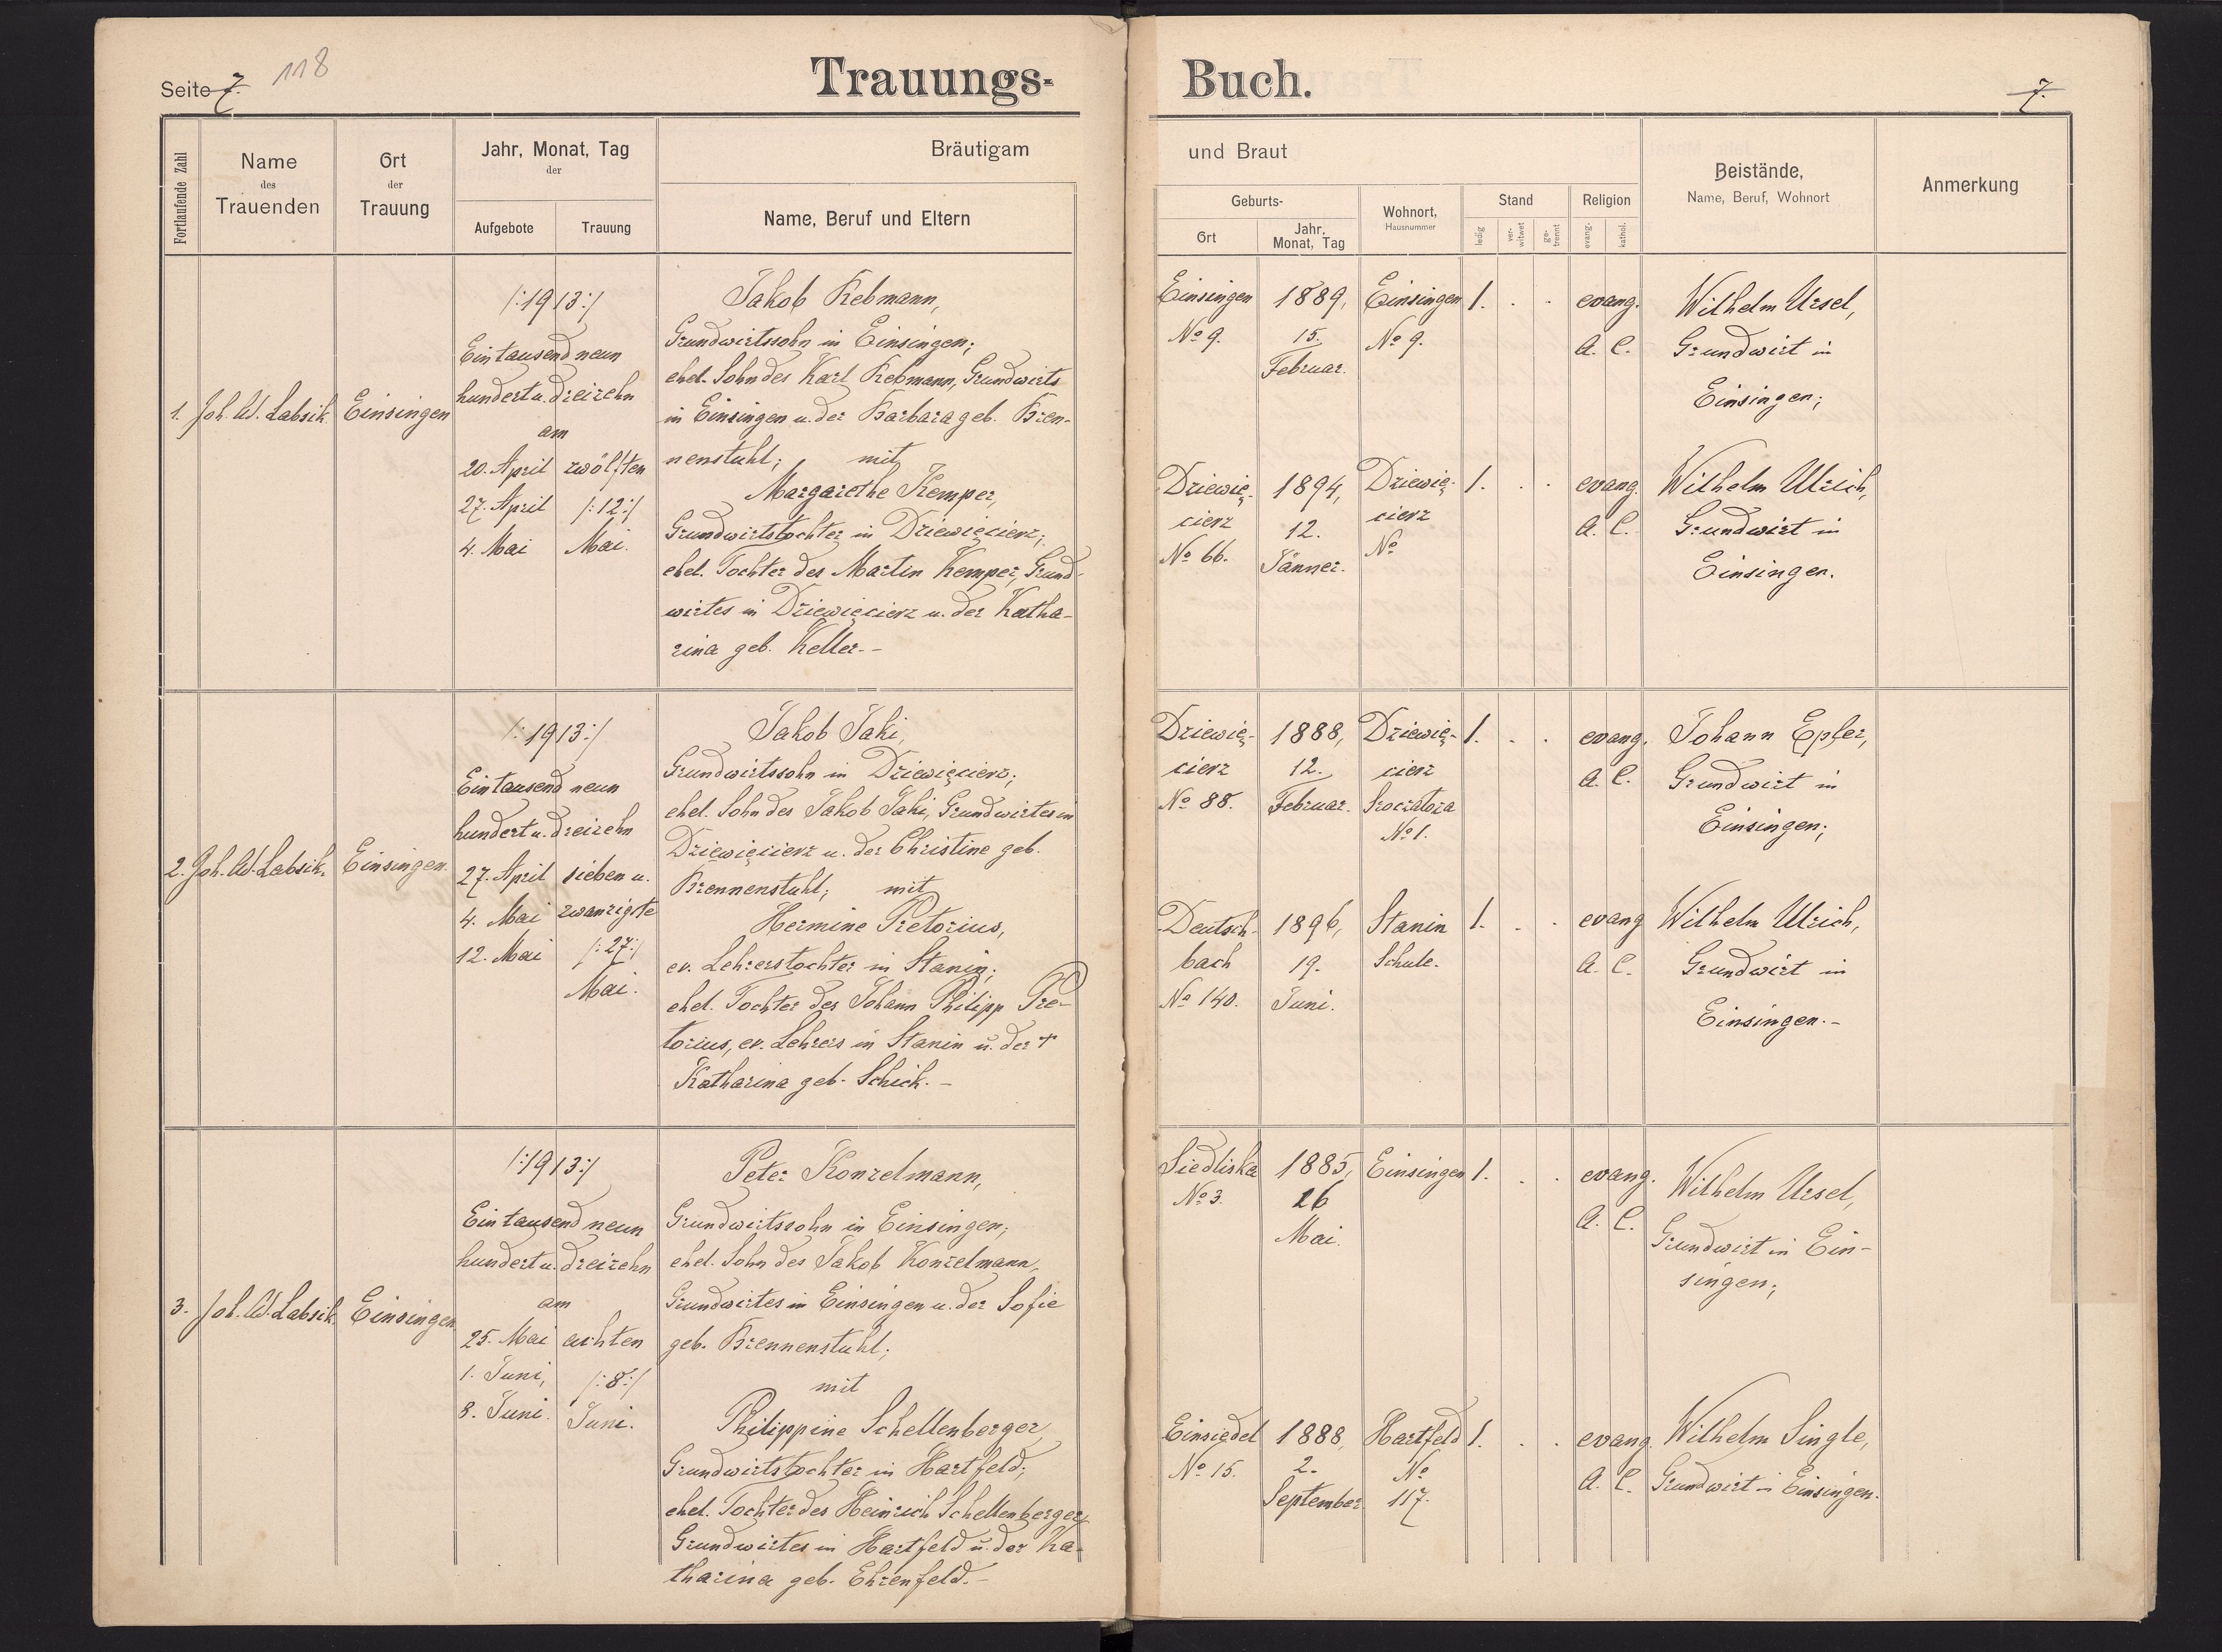 Seite 7. 118
Trauungs-
Buch.
7.
Fortlaufende Zahl
Name
des
Trauenden
Ort
der
Trauung
Jahr, Monat, Tag
der
Aufgebote
Trauung
Bräutigam
Name, Beruf und Eltern
und Braut
Geburts-
Ort
Jahr,
Monat, Tag
Wohnort,
Hausnummer
Stand
ledig
ver-
witwet
ge-
trennt
Religion
evang.
kathol.
Beistände,
Name, Beruf, Wohnort
Anmerkung
1. Joh. Ad. Labsik Einsingen
/:1913:/
Eintausend neun
hundert u. dreizehn
am
20. April
27. April
4. Mai
zwölften
/:12:/
Mai.
Jakob Rebmann,
Grundwirtssohn in Einsingen;
ehel. Sohn des Karl Rebmann, Grundwirts
in Einsingen u. der Barbara geb. Bren-
nenstuhl; mit
Margarethe Kemper,
Grundwirtstochter in Dziewięcierz;
ehel. Tochter des Martin Kemper, Grund-
wirtes in Dziewięcierz u. der Katha-
rina geb. Keller.-
Einsingen
No 9.
1889,
15.
Februar.
Einsingen
No 9.
1. . .
evang.
A. C.
Wilhelm Ursel,
Grundwirt in
Einsingen;
Dziewię-
cierz
No 66.
1894,
12.
Jänner.
Dziewię-
cierz
No
1. . .
evang.
A. C.
Wilhelm Ulrich,
Grundwirt in
Einsingen.
2. Joh. Ad. Labsik. Einsingen.
/:1913:/
Eintausend neun
hundert u. dreizehn
27. April
4. Mai
12. Mai
sieben u.
zwanzigste
/:27:/
Mai.
Jakob Jaki,
Grundwirtssohn in Dziewięcierz;
ehel. Sohn des Jakob Jaki, Grundwirtes in
Dziewięcierz u. der Christine geb.
Brennenstuhl; mit
Hermine Pretorius,
ev. Lehrerstochter in Stanin;
ehel. Tochter des Johann Philipp Pre-
torius, ev. Lehrers in Stanin u. der +
Katharina geb. Schick.-
Dziewię-
cierz
No 88.
1888,
12.
Februar.
Dziewię-
cierz
No 1.
1. . .
evang.
A. C.
Johann Epler,
Grundwirt in
Einsingen;
Deutsch-
bach
No 140.
1896,
19.
Juni.
Stanin
Schule.
1. . .
evang
A. C.
Wilhelm Ulrich,
Grundwirt in
Einsingen.-
3. Joh. Ad. Labsik. Einsingen
/:1913:/
Eintausend neun
hundert u. dreizehn
am
25. Mai
1. Juni,
8. Juni.
achten
/:8:/
Juni.
Peter Konzelmann,
Grundwirtssohn in Einsingen;
ehel. Sohn des Jakob Konzelmann,
Grundwirtes in Einsingen u. der Sofie
geb. Brennenstuhl;
mit
Philippine Schellenberger,
Grundwirtstochter in Hartfeld;
ehel. Tochter des Heinrich Schellenberger,
Grundwirtes in Hartfeld u. der Ka-
tharina geb. Ehrenfeld.-
Siedliska
No 3.
1885,
26
Mai.
Einsingen
1. . .
evang.
A. C.
Wilhelm Ursel,
Grundwirt in Ein-
singen;
Einsiedel
No 15.
1888,
2.
September
Hartfeld
No
117.
1. . .
evang.
A. C.
Wilhelm Single,
Grundwirt in Einsingen.